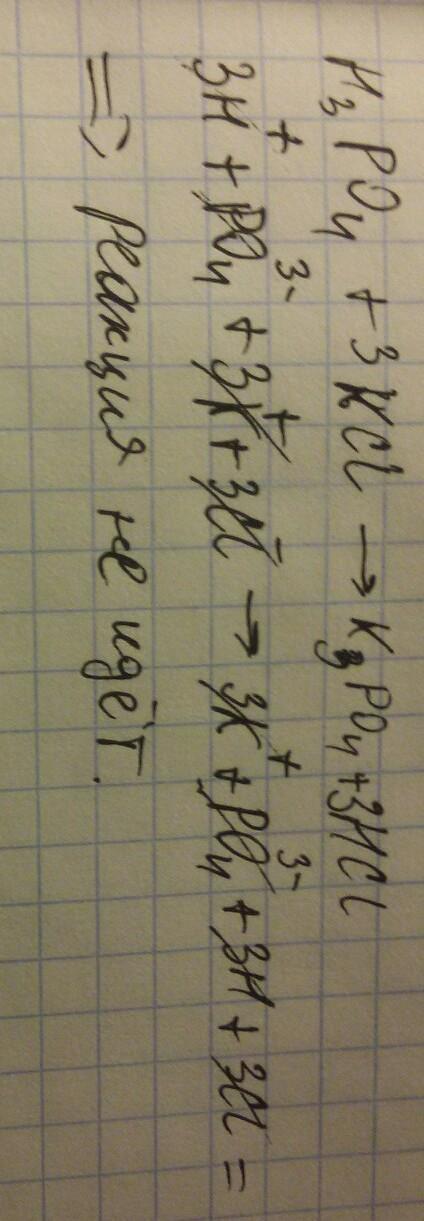 H₃PO₄ + 3KCl → K₃PO₄ + 3HCl
3H⁺ + PO₄³⁻ + 3K⁺ + 3Cl⁻ → 3K⁺ + PO₄³⁻ + 3H + 3Cl =
=> реакция не идёт.